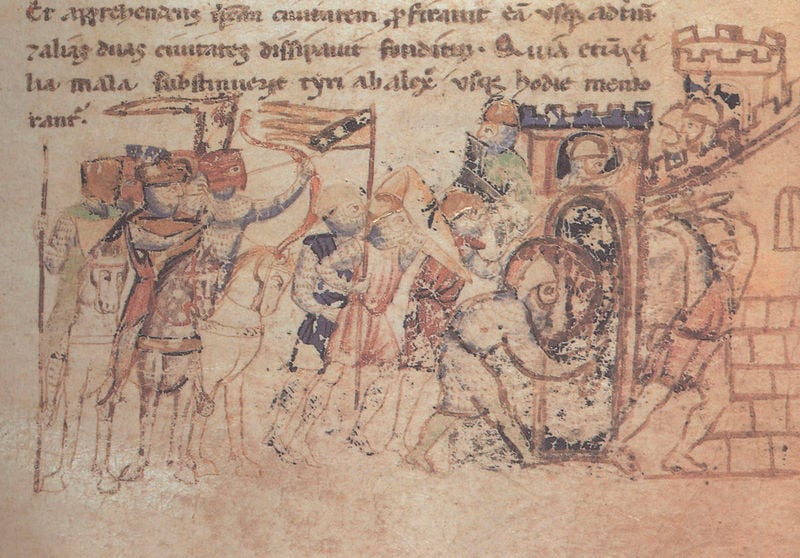 Et apprehendens ip̃am ciuitatem ꝓstrauit eã usqꝫ ad
⁊ alias duas ciuitates dissipauit funditus.
lia mala substinuerũt tyri ab alex̃ usqꝫ hodie memo
rant᷑.